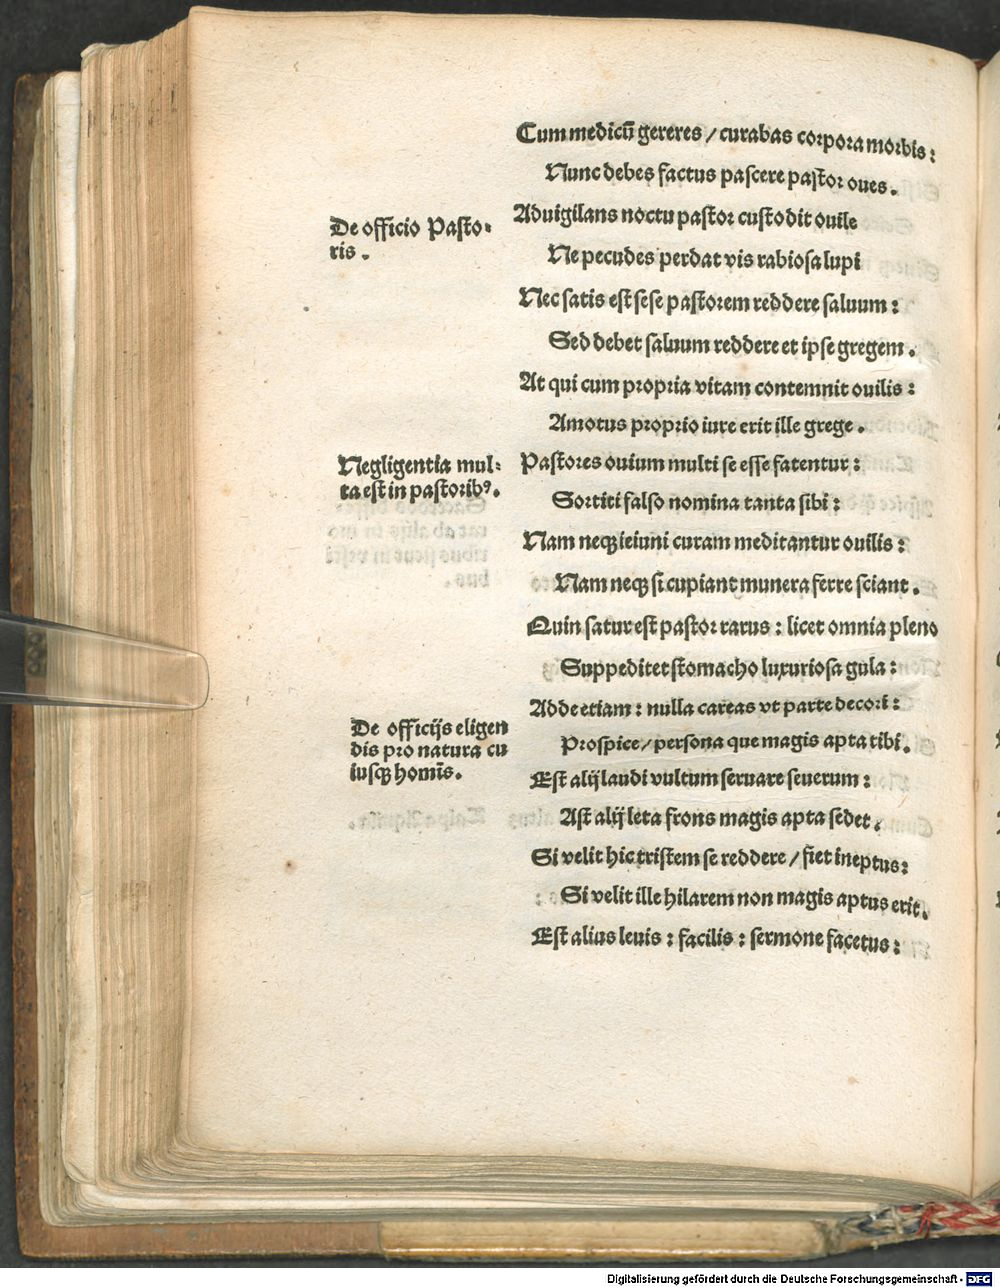 Cum medicū gereres / curabas corpora morbis:
Nunc debes factus pascere pastor oues.
De officio Pasto-
ris.
Aduigilans noctu pastor custodit ouile
Ne pecudes perdat vis rabiosa lupi
Nec satis est sese pastorem reddere saluum:
Sed debet saluum reddere et ipse gregem.
At qui cum propria vitam contemnit ouilis:
Amotus proprio iure erit ille grege.
Negligentia mul-
ta est in pastoribꝰ.
Pastores ouium multi se esse fatentur:
Sortiti falso nomina tanta sibi:
Nam neqꝫ ieiuni curam meditantur ouilis:
Nam neqꝫ si cupiant munera ferre sciant.
Quin satur est pastor rarus: licet omnia pleno
Suppeditet stomacho luxuriosa gula:
De officijs eligen
dis pro natura cu
iusqꝫ homīs.
Adde etiam: nulla careas vt parte decori:
Prospice / persona que magis apta tibi.
Est alij laudi vultum seruare seuerum:
Ast alij leta frons magis apta sedet.
Si velit hic tristem se reddere / fiet ineptus:
Si velit ille hilarem non magis aptus erit.
Est alius leuis: facilis: sermone facetus:
Digitalisierung gefördert durch die Deutsche Forschungsgemeinschaft - DFG